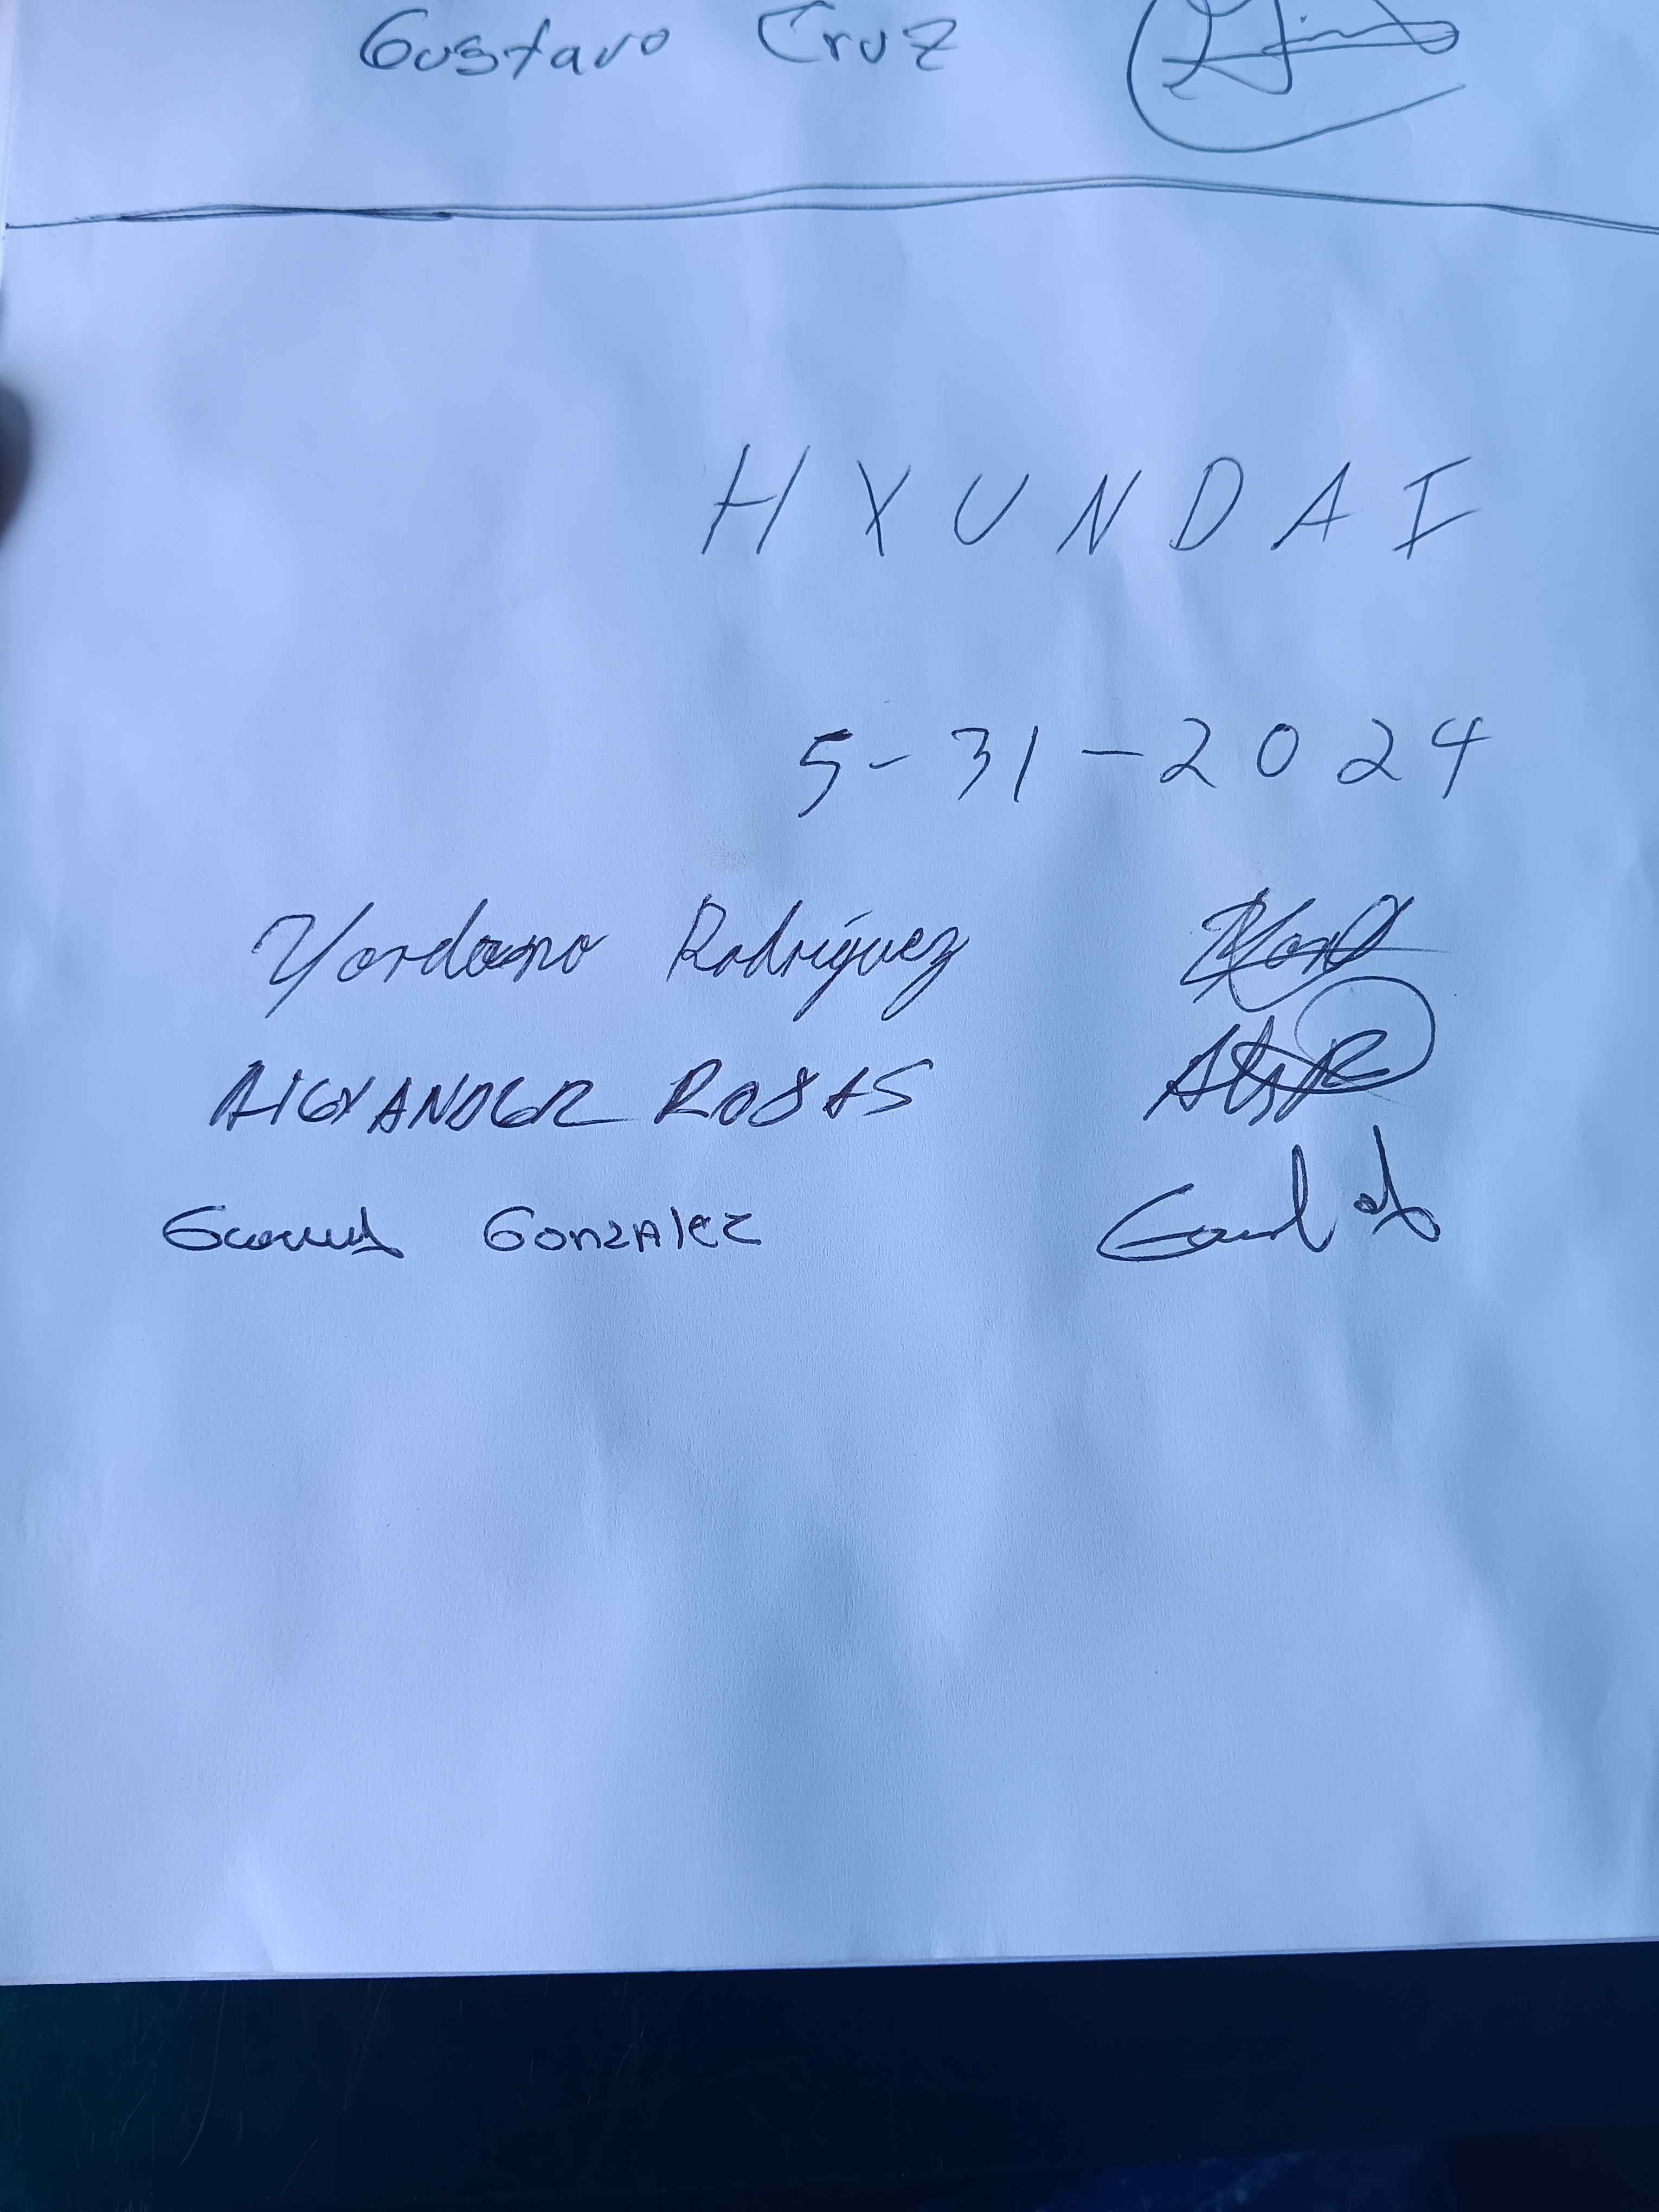 Gustavo Cruz
HYUNDAI
5-31-2024
Yordano Rodríguez
AlEXANDER ROJAS
GonzAlez